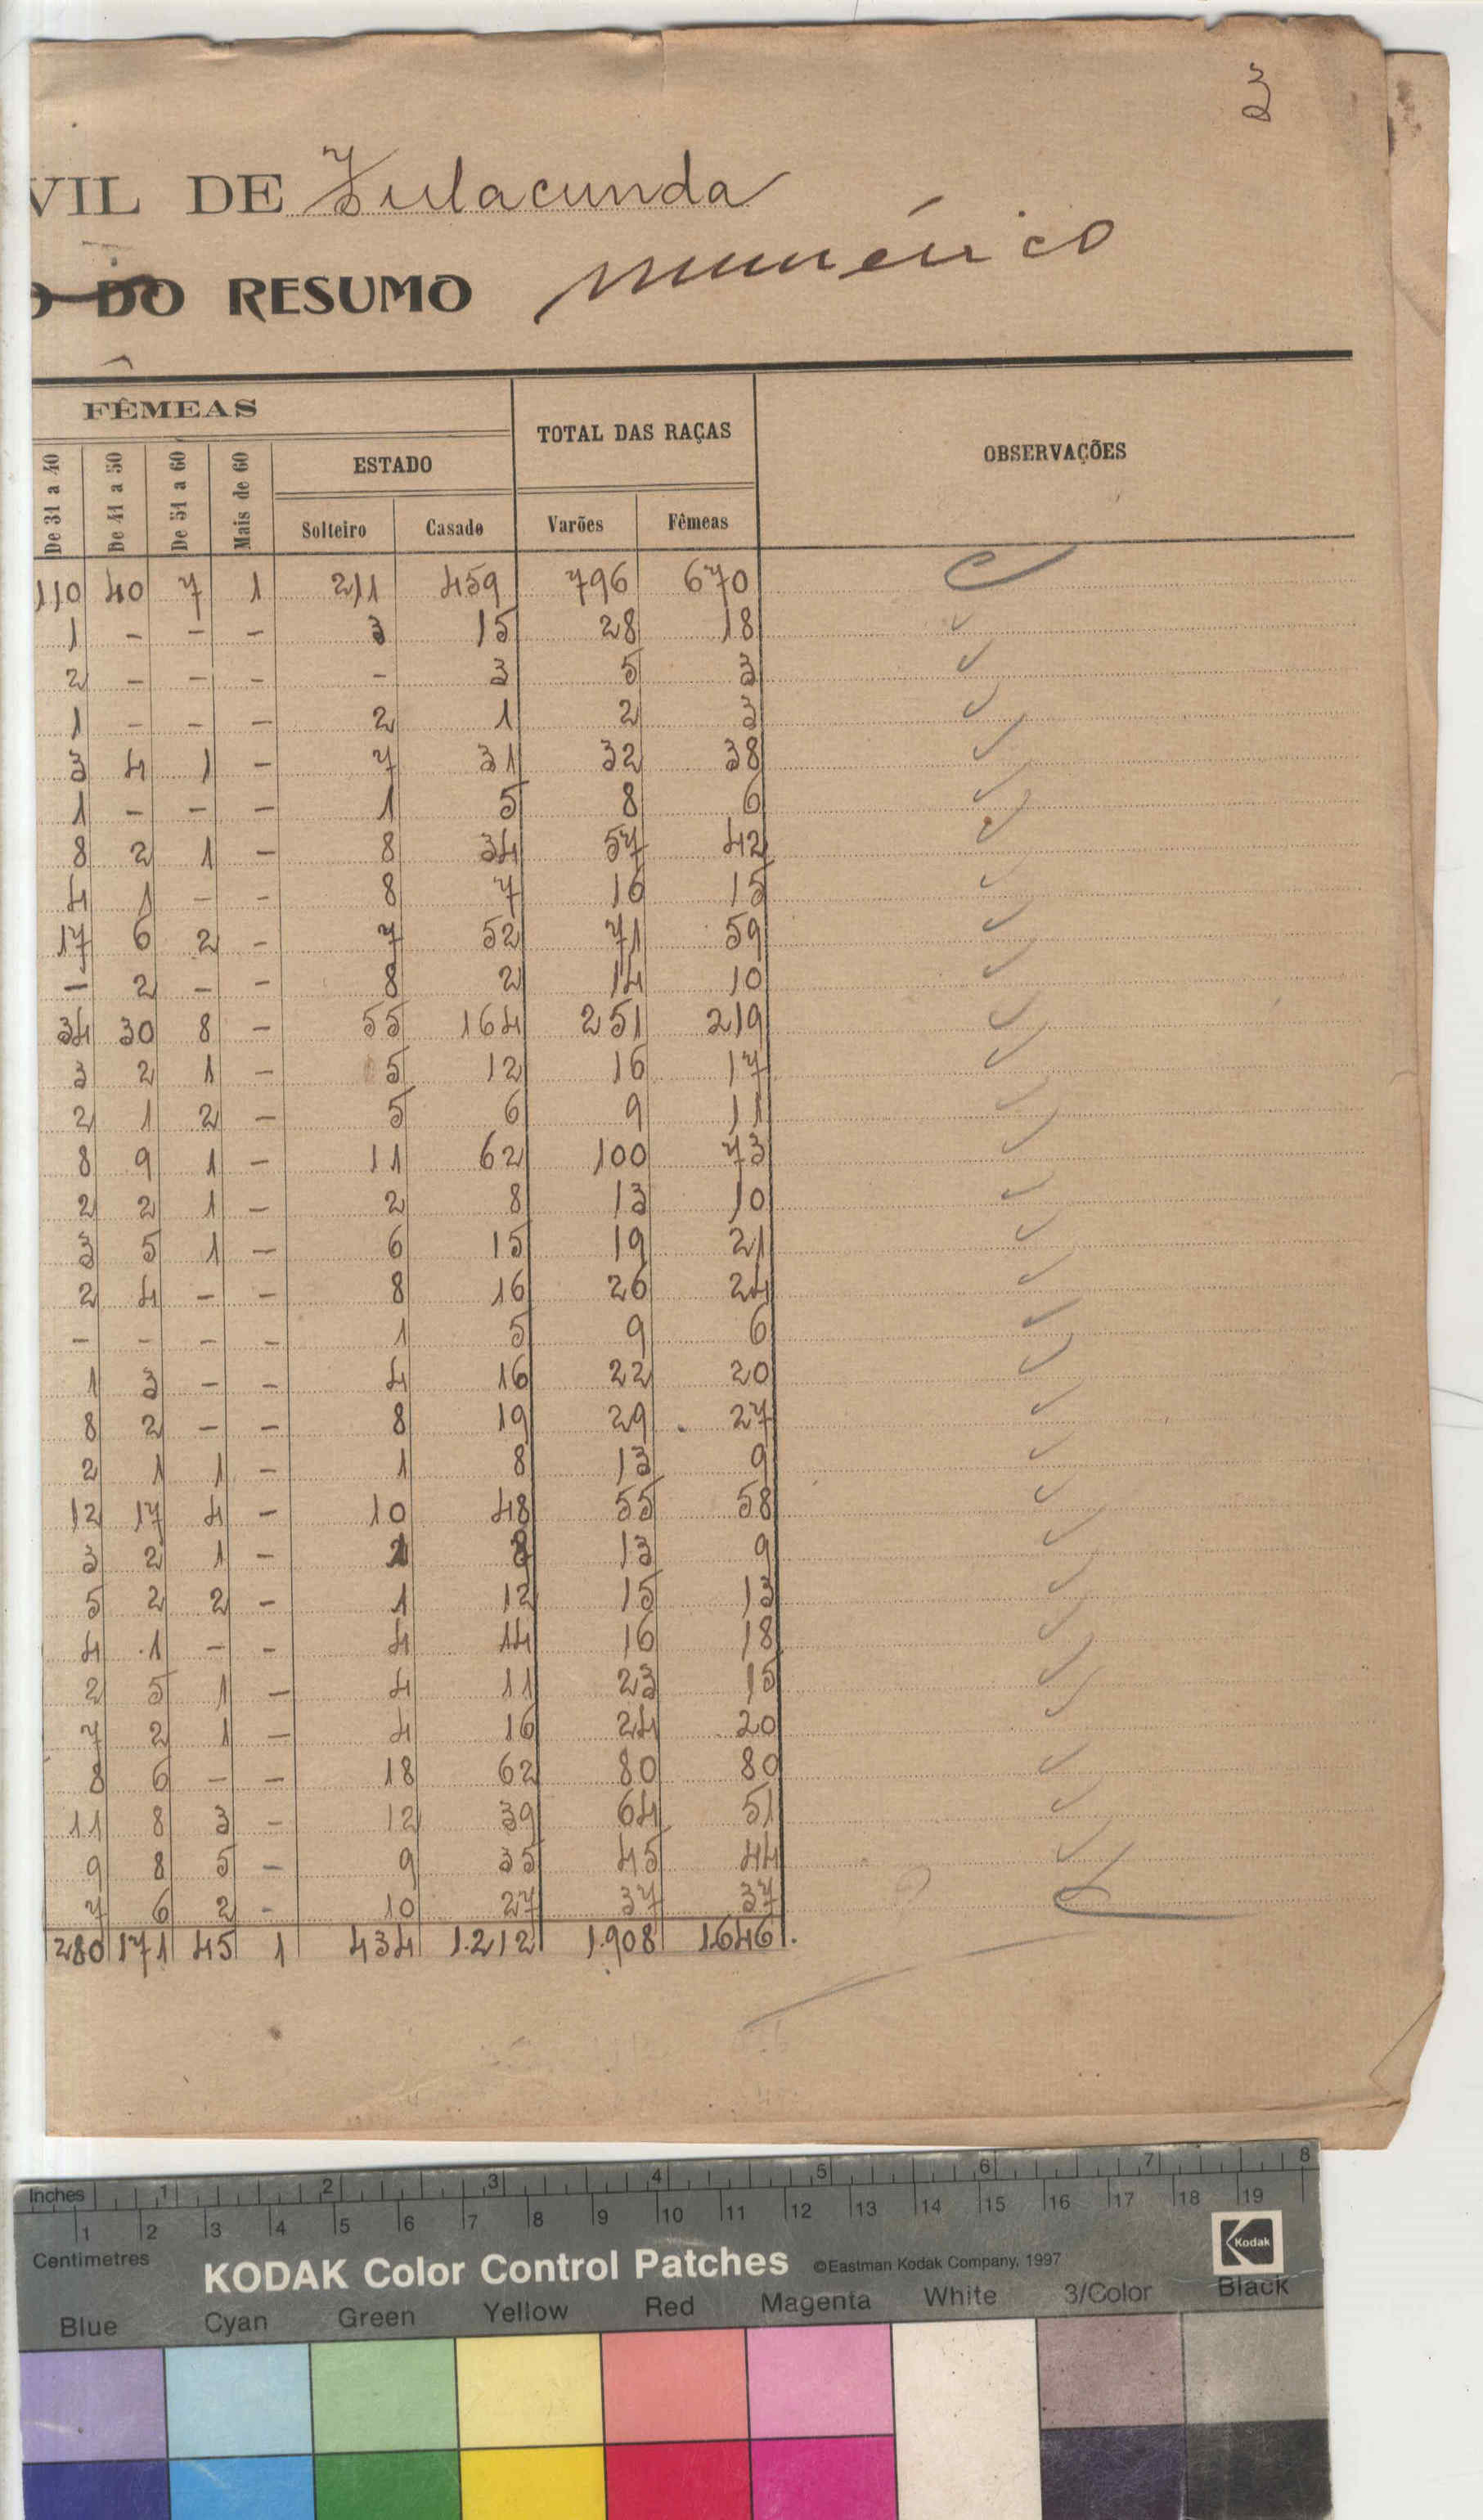 3
VIL DE Fulacunda
O DO RESUMO numérico
FÊMEAS
TOTAL DAS RAÇAS
OBSERVAÇÕES
De 31 a 40 De 41 a 50 De 51 a 60 Mais de 60
ESTADO
Solteiro Casado Varões Fêmeas
110 40 7 1 211 459 796 670
1 - - - 3 15 28 18
2 - - - - 3 5 3
1 - - - 2 1 2 3
3 4 1 - 7 31 32 38
1 - - - 1 5 8 6
8 2 1 - 8 34 57 42
4 1 - - 8 7 16 15
17 6 2 - 7 52 71 59
- 2 - - 8 2 14 10
34 30 8 - 55 164 251 219
3 2 1 - 5 12 16 17
2 1 2 - 5 6 9 11
8 9 1 - 11 62 100 73
2 2 1 - 2 8 13 10
3 5 1 - 6 15 19 21
2 4 - - 8 16 26 24
- - - - 1 5 9 6
1 3 - - 4 16 22 20
8 2 - - 8 19 29 27
2 1 1 - 1 8 13 9
12 17 4 - 10 48 55 58
3 2 1 - 13 9
5 2 2 - 1 12 15 13
4 1 - - 4 14 16 18
2 5 1 - 4 11 23 15
7 2 1 - 4 16 24 20
8 6 - - 18 62 80 80
11 8 3 - 12 39 64 51
9 8 5 - 9 35 45 44
7 6 2 - 10 27 37 37
280 171 45 1 434 1.212 1.908 1646.
Inches 1 2 3 4 5 6 7 8
1 2 3 4 5 6 7 8 9 10 11 12 13 14 15 16 17 18 19
Centimetres
KODAK Color Control Patches ©Eastman Kodak Company, 1997 Kodak
Blue Cyan Green Yellow Red Magenta White 3/Color Black